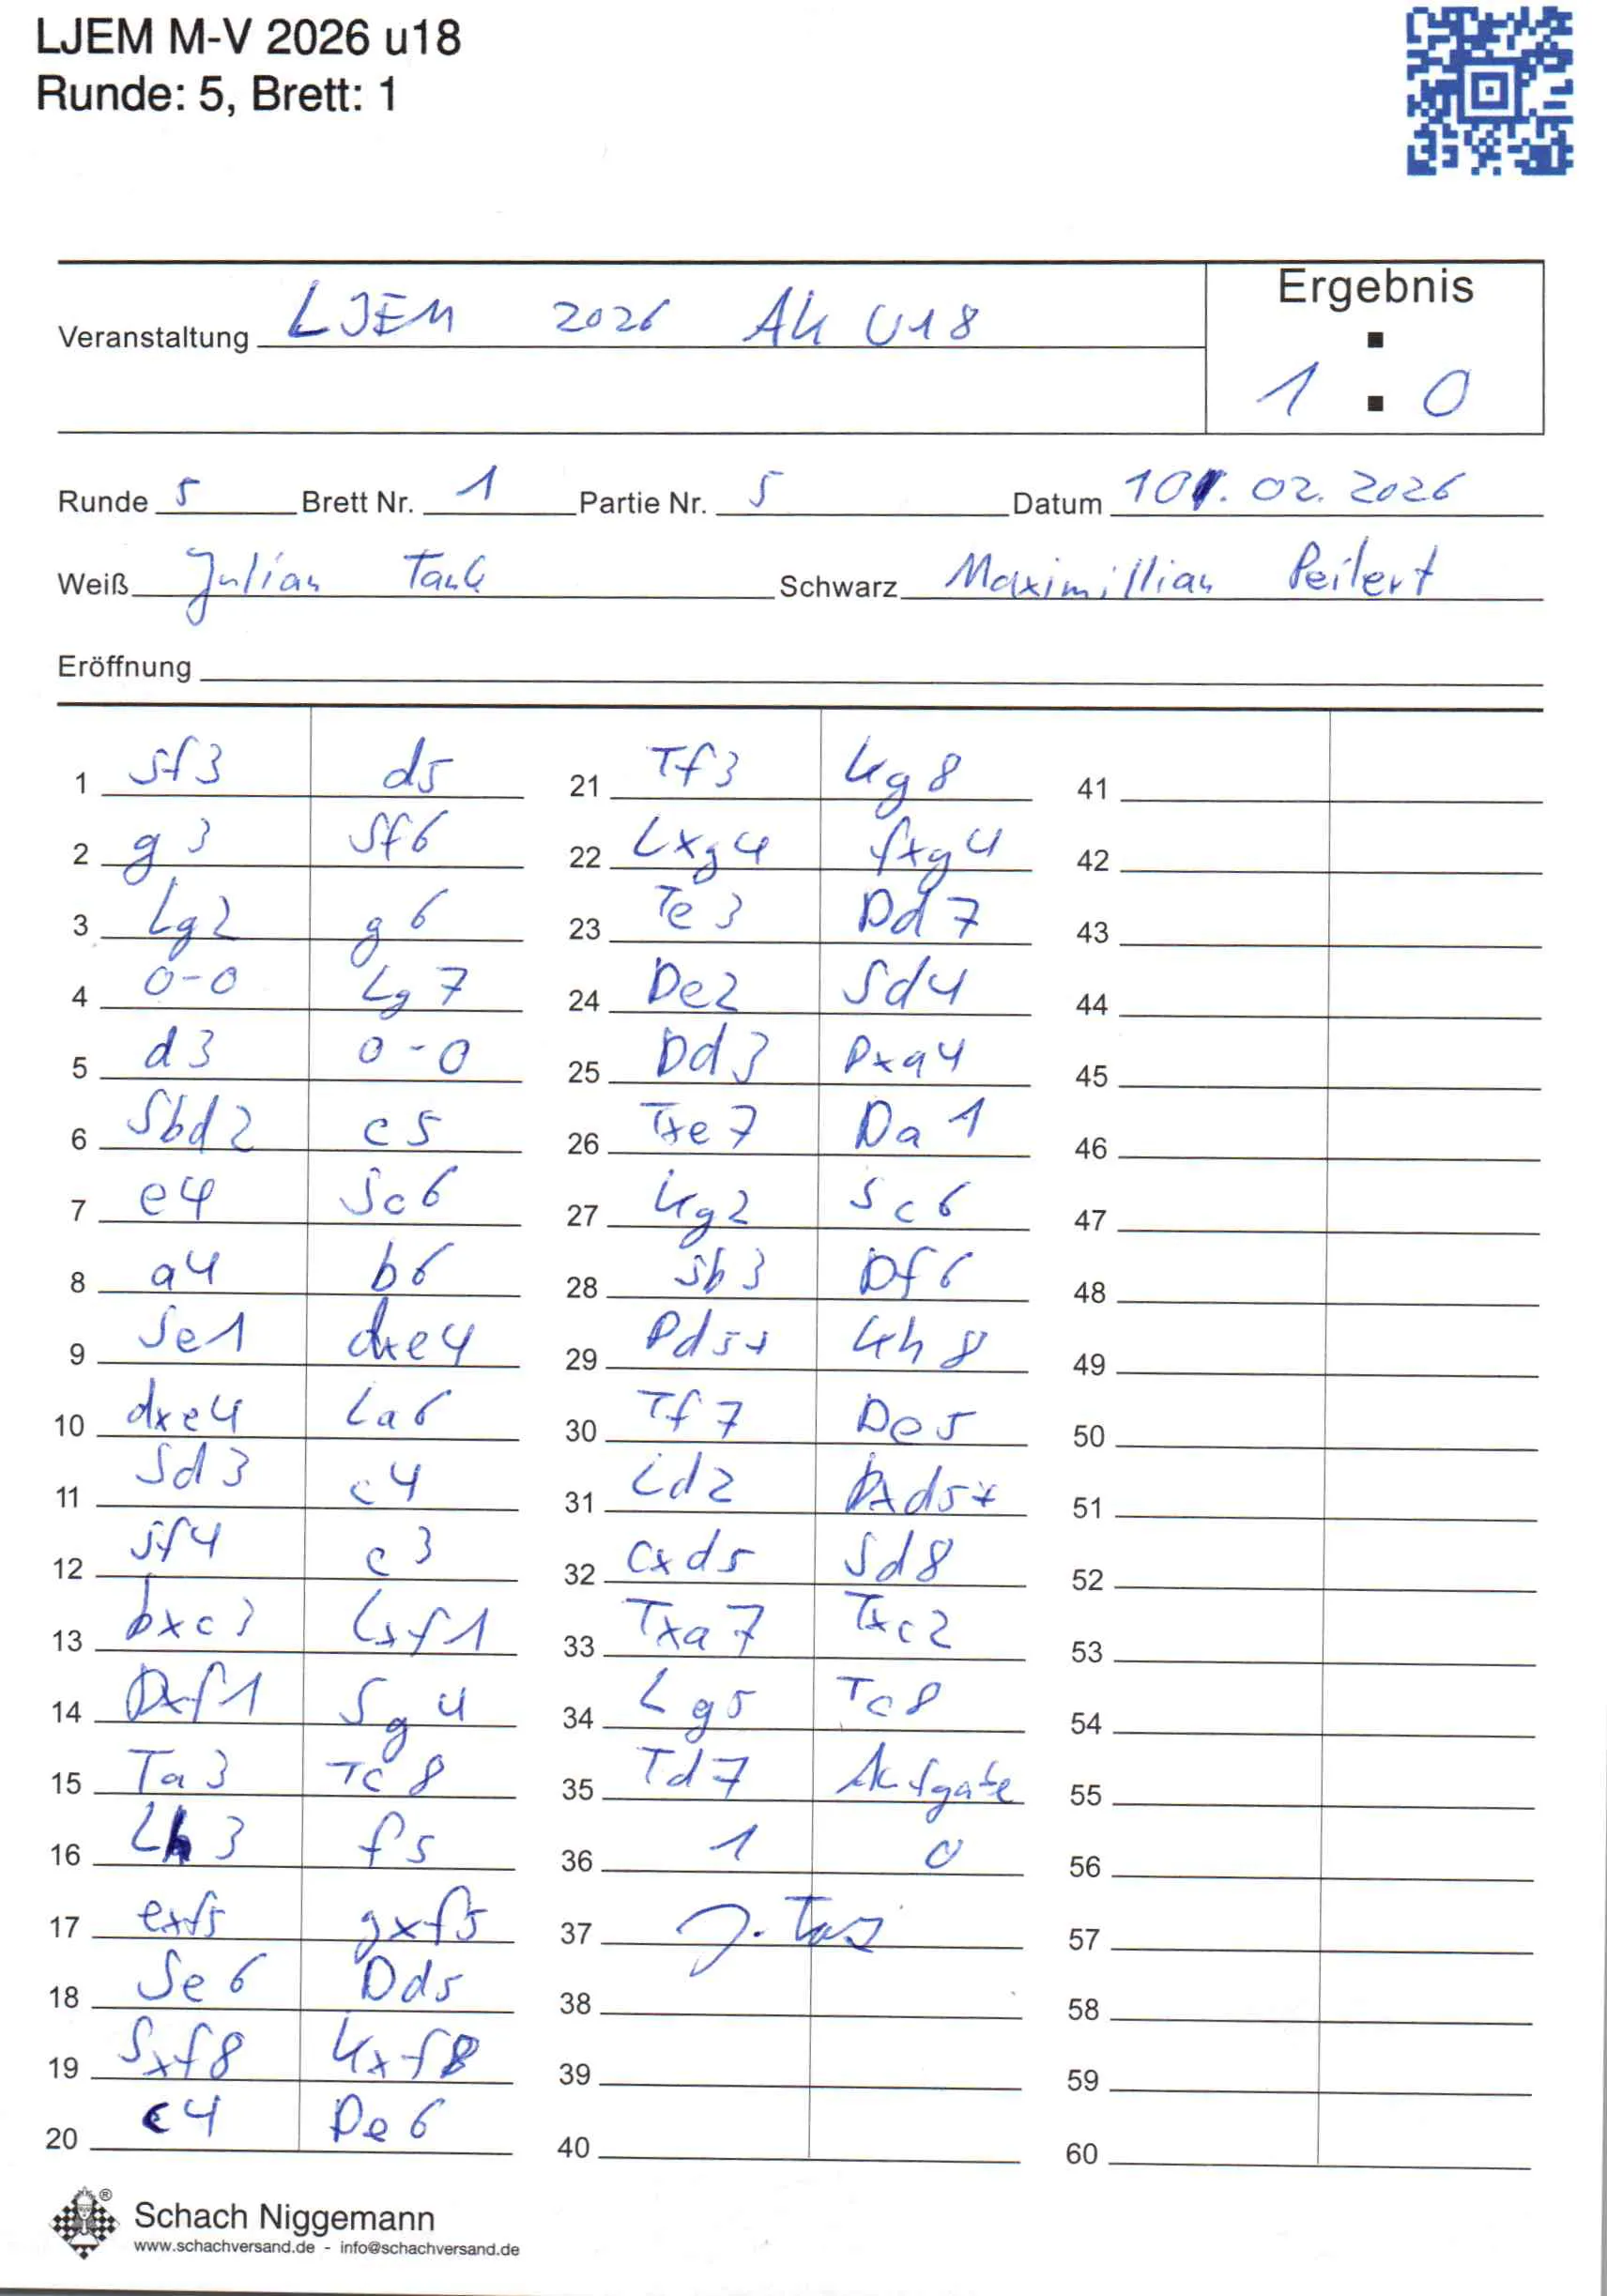 LJEM M-V 2026 u18
Runde: 5, Brett: 1
Ergebnis
:
Veranstaltung LJEM 2026 AK U18
1 : 0
Runde 5 Brett Nr. 1 Partie Nr. 5 Datum 10.02.2026
Weiß Julian Tank Schwarz Maximillian Peilert
Eröffnung
1 Sf3 d5
2 g3 Sf6
3 Lg2 g6
4 0-0 Lg7
5 d3 0-0
6 Sbd2 c5
7 e4 Sc6
8 a4 b6
9 Se1 dxe4
10 dxe4 La6
11 Sd3 c4
12 Sf4 c3
13 bxc3 Lxf1
14 Dxf1 Sg4
15 Ta3 Tc8
16 Lh3 f5
17 exf5 gxf5
18 Se6 Dd5
19 Sxf8 Kxf8
20 c4 De6
21 Tf3 Kg8
22 Lxg4 fxg4
23 Te3 Dd7
24 De2 Sd4
25 Dd3 Dxa4
26 Txe7 Da1
27 Kg2 Sc6
28 Sb3 Df6
29 Dd5+ Kh8
30 Tf7 De5
31 Ld2 Dxd5+
32 cxd5 Sd8
33 Txa7 Txc2
34 Lg5 Tc8
35 Td7 Aufgabe
36 1 0
37 J. Tank
38
39
40
41
42
43
44
45
46
47
48
49
50
51
52
53
54
55
56
57
58
59
60
®
Schach Niggemann
www.schachversand.de - info@schachversand.de